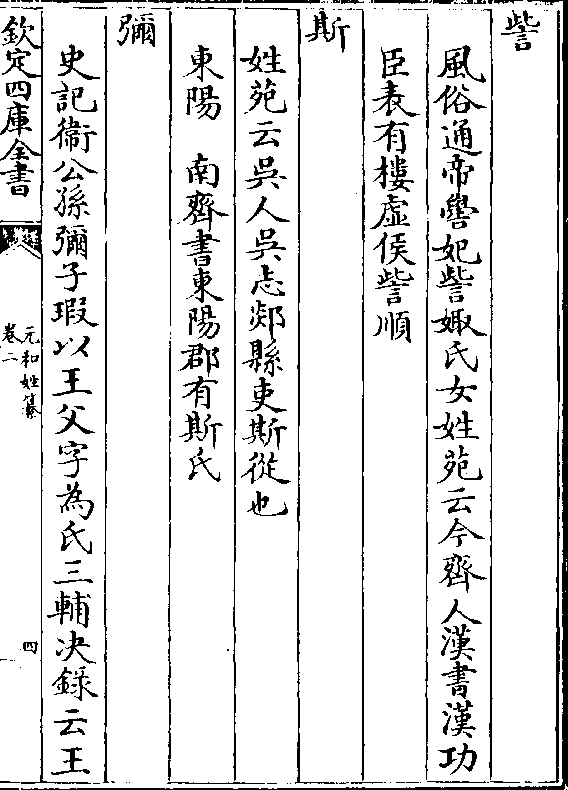 訾
風俗通帝嚳妃訾娵氏女姓苑云今齊人漢書漢功
臣表有樓虛侯訾順
斯
姓苑云吳人吳志郯縣吏斯從也
東陽　南齊書東陽郡有斯氏
彌
史記衛公孫彌子瑕以王父字為氏三輔决錄云王
欽定四庫全書
元和姓纂
卷二
四